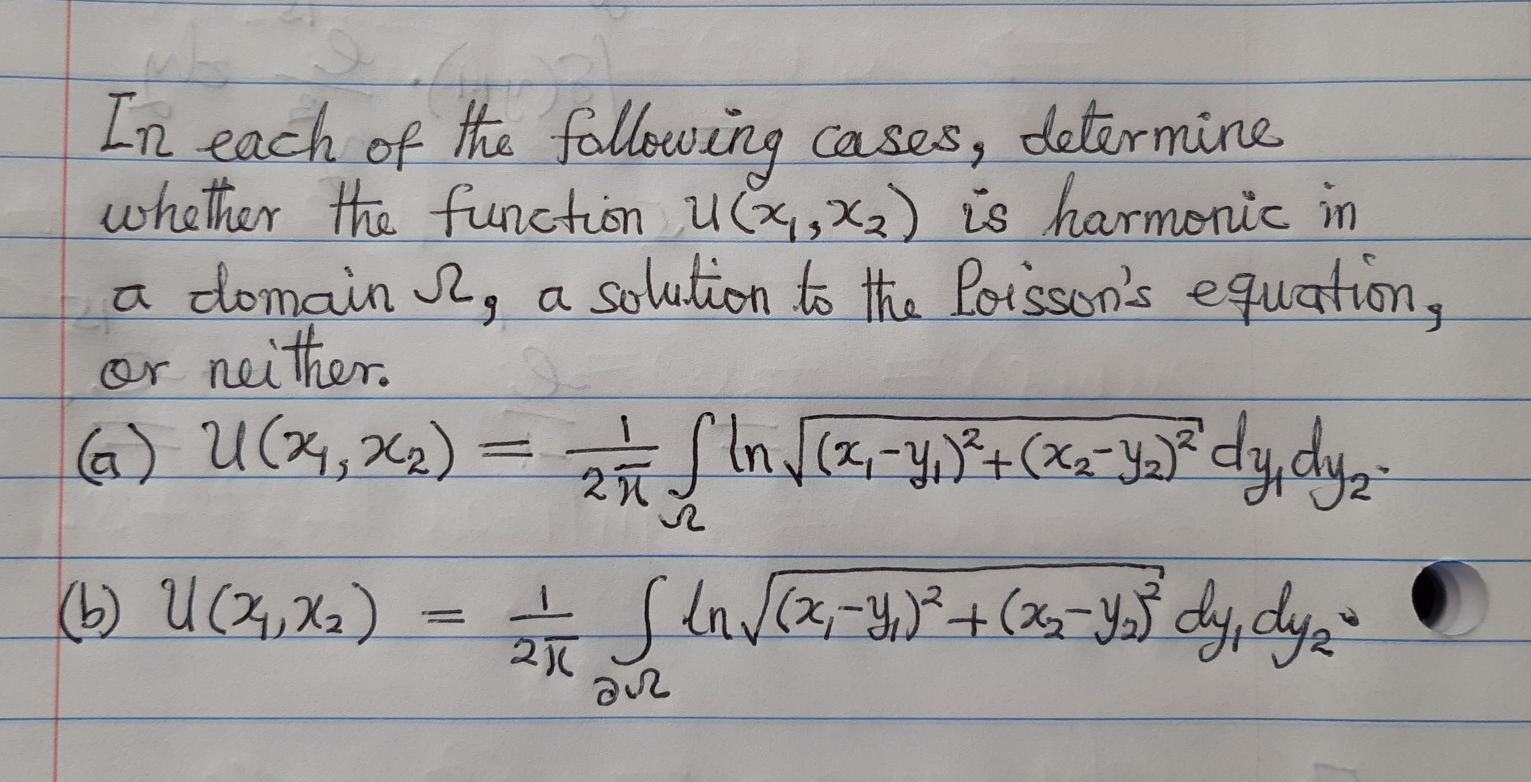 In each of the following cases, determine
whether the function u(x₁,x₂) is harmonic in
a domain Ω, a solution to the Poisson's equation,
or neither.
(a) u(x₁, x₂) = 1/2π ∫_Ω ln √((x₁-y₁)²+(x₂-y₂)²) dy₁dy₂.
(b) u(x₁,x₂) = 1/2π ∫_∂Ω ln √((x₁-y₁)²+(x₂-y₂)²) dy₁dy₂.